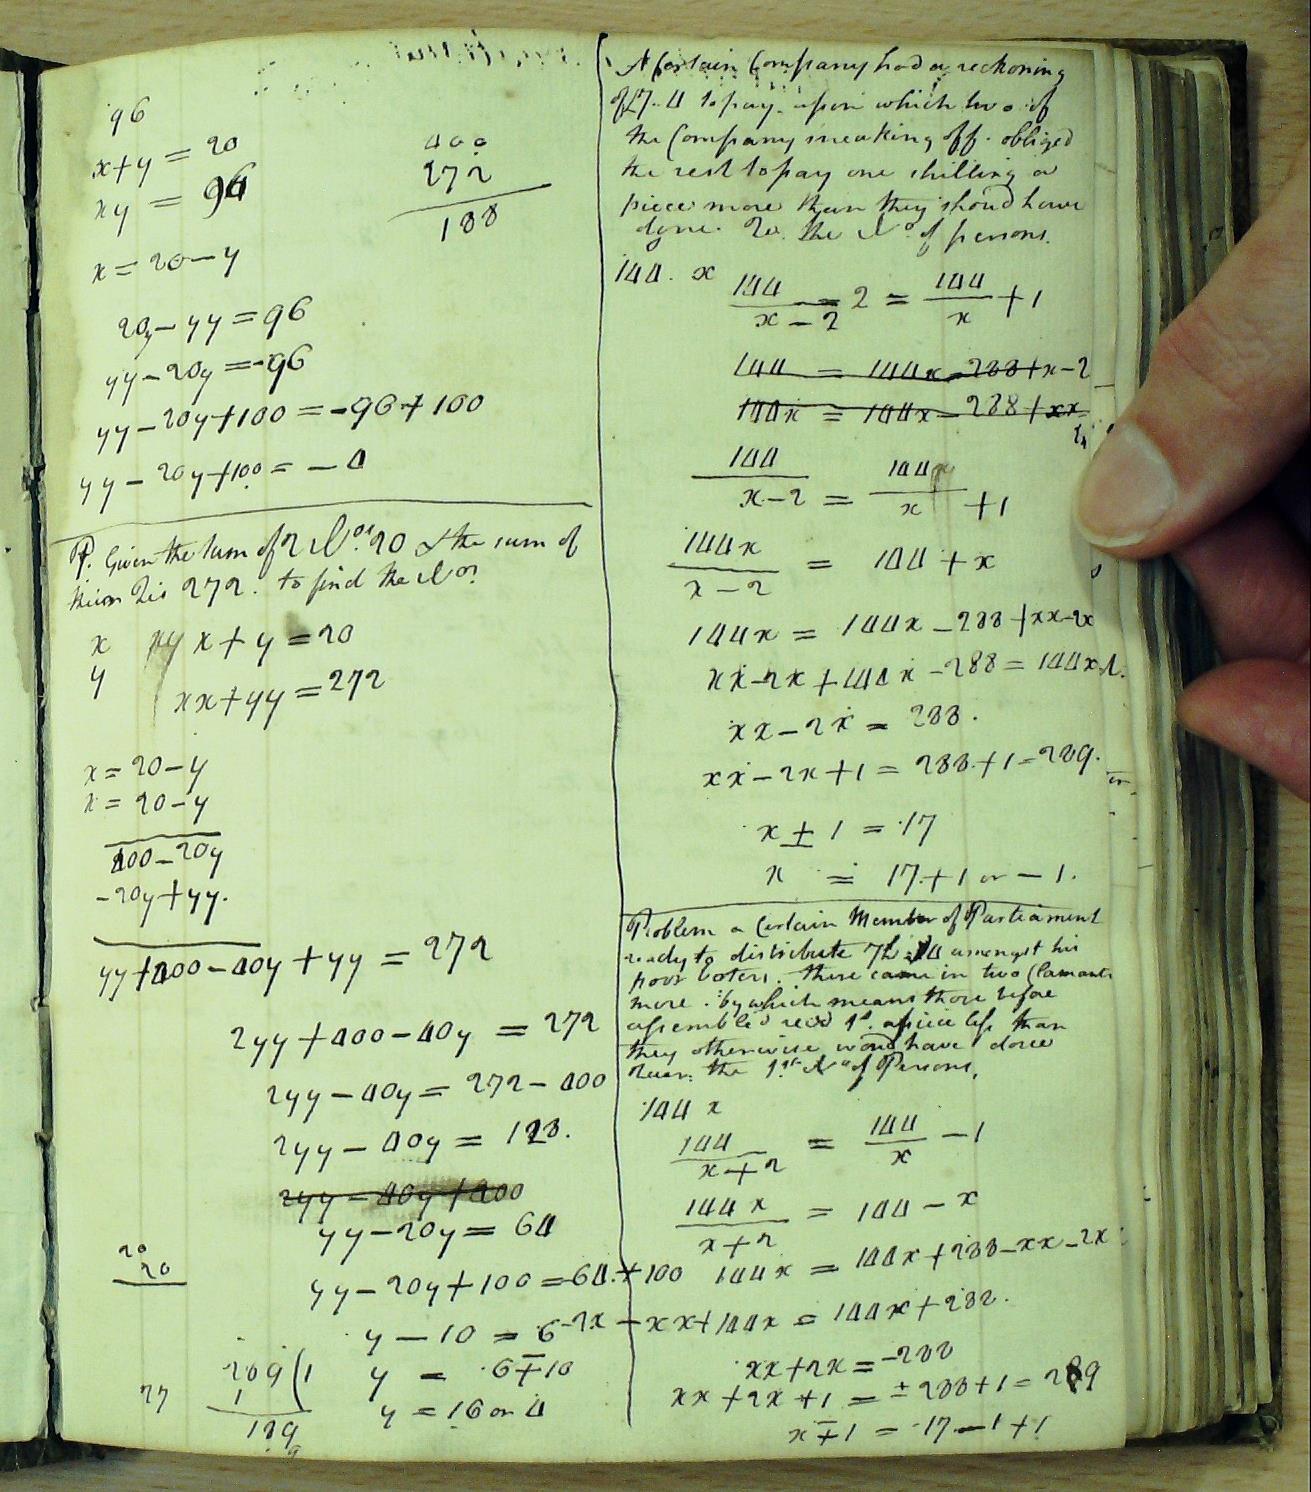 96
x+y = 20
xy = 96
400
272
188
x = 20-y
20y-yy = 96
yy-20y = -96
yy-20y+100 = -96+100
yy-20y+100 = -4
P. Given the sum of 2 Nos. 20 & the sum of
their 2is 272. to find the Nos
x xy x+y = 20
y xx+yy = 272
x = 20-y
x = 20-y
400-20y
-20y+yy.
yy+400-40y+yy = 272
2yy+400-40y = 272
2yy-40y = 272-400
2yy-40y = 128.
2yy-40y+400
yy-20y = 64
20
20
yy-20y+100 = -64.+100
y-10 = 6
y = 6∓10
y = 16 or 4
77
209(1
1
189
A Certain Company had a reckoning
of £7-4 to pay. upon which two of
the Company sneaking off. obliged
the rest to pay one shilling a
piece more than they should have
done. Qu. the No. of persons.
144. x
144/x-2 = 2 = 144/x +1
144 = 144x-288+x-2
144x = 144x-288+xx
144/x-2 = 144x/x +1
144x/x-2 = 144+x
144x = 144x-288+xx-2x
xx-2x+144x-288 = 144x
xx-2x = 288.
xx-2x+1 = 288+1 = 289.
x±1 = 17
x = 17+1 or -1.
Problem a Certain Member of Parliament
ready to distribute 7£. 4 amongst his
poor voters. there came in two Claimants
more. by which means those before
assembled recd 1s. apiece less than
they otherwise would have done
Quer. the 1st No of Persons.
144 x
144/x+2 = 144/x -1
144x/x+2 = 144-x
144x = 144x+288-xx-2x
-2x-xx+144x = 144x+288.
xx+2x = -288
xx+2x+1 = ±288+1 = 289
x∓1 = 17-1+1